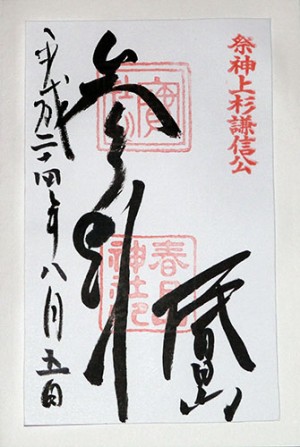 祭神上杉謙信公
春日山
参拝
平成二十四年八月五日
春日
神社